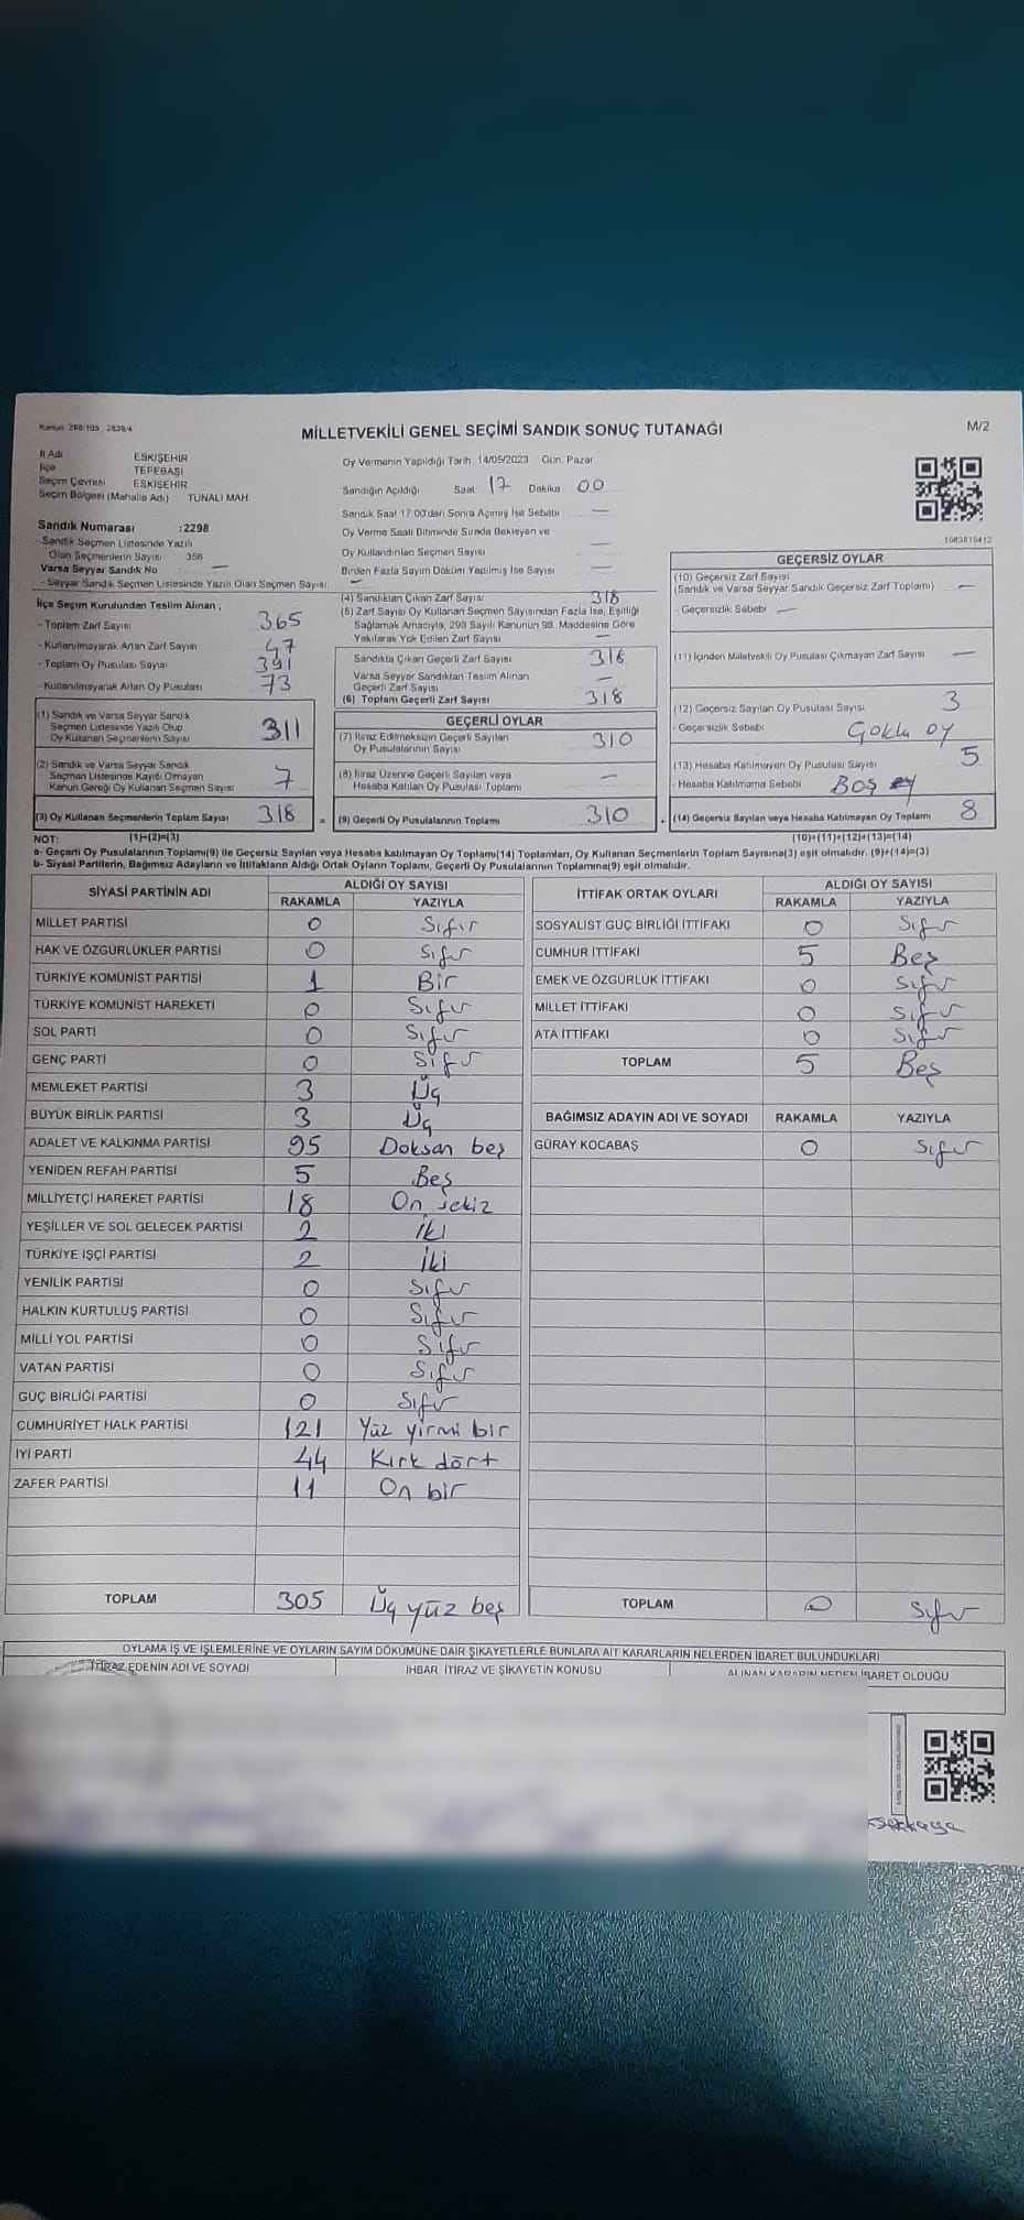 Kanun: 298/105, 2839/4
MİLLETVEKİLİ GENEL SEÇİMİ SANDIK SONUÇ TUTANAĞI
M/2
İl Adı ESKİŞEHİR
İlçe TEPEBAŞI
Seçim Çevresi ESKİŞEHİR
Seçim Bölgesi (Mahalle Adı) TUNALI MAH.
Sandık Numarası :2298
- Sandık Seçmen Listesinde Yazılı
Olan Seçmenlerin Sayısı 356
Varsa Seyyar Sandık No —
- Seyyar Sandık Seçmen Listesinde Yazılı Olan Seçmen Sayısı —
İlçe Seçim Kurulundan Teslim Alınan ;
- Toplam Zarf Sayısı 365
- Kullanılmayarak Artan Zarf Sayısı 47
- Toplam Oy Pusulası Sayısı 391
- Kullanılmayarak Artan Oy Pusulası 73
(1) Sandık ve Varsa Seyyar Sandık
Seçmen Listesinde Yazılı Olup
Oy Kullanan Seçmenlerin Sayısı 311
(2) Sandık ve Varsa Seyyar Sandık
Seçmen Listesinde Kaydı Olmayan
Kanun Gereği Oy Kullanan Seçmen Sayısı 7
(3) Oy Kullanan Seçmenlerin Toplam Sayısı 318 =
Oy Vermenin Yapıldığı Tarih: 14/05/2023 Gün: Pazar
Sandığın Açıldığı Saat 17 Dakika 00
Sandık Saat 17:00'den Sonra Açılmış İse Sebebi —
Oy Verme Saati Bitiminde Sırada Bekleyen ve
Oy Kullandırılan Seçmen Sayısı —
Birden Fazla Sayım Döküm Yapılmış İse Sayısı —
(4) Sandıktan Çıkan Zarf Sayısı 318
(5) Zarf Sayısı Oy Kullanan Seçmen Sayısından Fazla İse, Eşitliği
Sağlamak Amacıyla, 298 Sayılı Kanunun 98. Maddesine Göre
Yakılarak Yok Edilen Zarf Sayısı —
Sandıkta Çıkan Geçerli Zarf Sayısı 318
Varsa Seyyar Sandıktan Teslim Alınan
Geçerli Zarf Sayısı —
(6) Toplam Geçerli Zarf Sayısı 318
GEÇERLİ OYLAR
(7) İtiraz Edilmeksizin Geçerli Sayılan
Oy Pusulalarının Sayısı 310
(8) İtiraz Üzerine Geçerli Sayılan veya
Hesaba Katılan Oy Pusulası Toplamı —
(9) Geçerli Oy Pusulalarının Toplamı 310 +
1083816412
GEÇERSİZ OYLAR
(10) Geçersiz Zarf Sayısı
(Sandık ve Varsa Seyyar Sandık Geçersiz Zarf Toplamı) —
- Geçersizlik Sebebi —
(11) İçinden Milletvekili Oy Pusulası Çıkmayan Zarf Sayısı —
(12) Geçersiz Sayılan Oy Pusulası Sayısı 3
- Geçersizlik Sebebi Çoklu oy
(13) Hesaba Katılmayan Oy Pusulası Sayısı 5
- Hesaba Katılmama Sebebi Boş oy
(14) Geçersiz Sayılan veya Hesaba Katılmayan Oy Toplamı 8
NOT: (1)+(2)=(3) (10)+(11)+(12)+(13)=(14)
a- Geçerli Oy Pusulalarının Toplamı(9) ile Geçersiz Sayılan veya Hesaba katılmayan Oy Toplamı(14) Toplamları, Oy Kullanan Seçmenlerin Toplam Sayısına(3) eşit olmalıdır. (9)+(14)=(3)
b- Siyasi Partilerin, Bağımsız Adayların ve İttifakların Aldığı Ortak Oyların Toplamı, Geçerli Oy Pusulalarının Toplamına(9) eşit olmalıdır.
SİYASİ PARTİNİN ADI ALDIĞI OY SAYISI
RAKAMLA YAZIYLA
MİLLET PARTİSİ 0 Sıfır
HAK VE ÖZGÜRLÜKLER PARTİSİ 0 Sıfır
TÜRKİYE KOMÜNİST PARTİSİ 1 Bir
TÜRKİYE KOMÜNİST HAREKETİ 0 Sıfır
SOL PARTİ 0 Sıfır
GENÇ PARTİ 0 Sıfır
MEMLEKET PARTİSİ 3 Üç
BÜYÜK BİRLİK PARTİSİ 3 Üç
ADALET VE KALKINMA PARTİSİ 95 Doksan beş
YENİDEN REFAH PARTİSİ 5 Beş
MİLLİYETÇİ HAREKET PARTİSİ 18 On sekiz
YEŞİLLER VE SOL GELECEK PARTİSİ 2 İki
TÜRKİYE İŞÇİ PARTİSİ 2 İki
YENİLİK PARTİSİ 0 Sıfır
HALKIN KURTULUŞ PARTİSİ 0 Sıfır
MİLLİ YOL PARTİSİ 0 Sıfır
VATAN PARTİSİ 0 Sıfır
GÜÇ BİRLİĞİ PARTİSİ 0 Sıfır
CUMHURİYET HALK PARTİSİ 121 Yüz yirmi bir
İYİ PARTİ 44 Kırk dört
ZAFER PARTİSİ 11 On bir
TOPLAM 305 Üç yüz beş
İTTİFAK ORTAK OYLARI ALDIĞI OY SAYISI
RAKAMLA YAZIYLA
SOSYALİST GÜÇ BİRLİĞİ İTTİFAKI 0 Sıfır
CUMHUR İTTİFAKI 5 Beş
EMEK VE ÖZGÜRLÜK İTTİFAKI 0 Sıfır
MİLLET İTTİFAKI 0 Sıfır
ATA İTTİFAKI 0 Sıfır
TOPLAM 5 Beş
BAĞIMSIZ ADAYIN ADI VE SOYADI RAKAMLA YAZIYLA
GÜRAY KOCABAŞ 0 Sıfır
TOPLAM 0 Sıfır
OYLAMA İŞ VE İŞLEMLERİNE VE OYLARIN SAYIM DÖKÜMÜNE DAİR ŞİKAYETLERLE BUNLARA AİT KARARLARIN NELERDEN İBARET BULUNDUKLARI
İTİRAZ EDENİN ADI VE SOYADI İHBAR İTİRAZ VE ŞİKAYETİN KONUSU ALINAN KARARIN NEDEN İBARET OLDUĞU